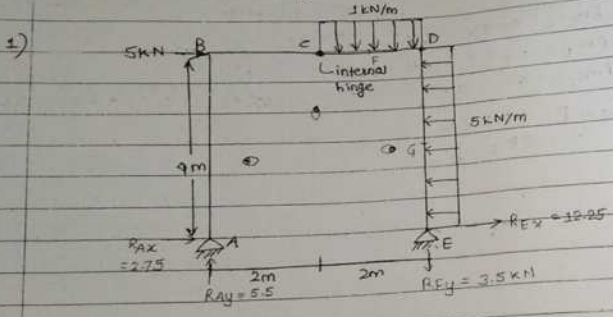 1kN/m
1)
5kN B C D
F
internal
hinge
5kN/m
G
4m
REx = 12.25
RAX A E
= 2.75
2m 2m
RAy = 5.5 REy = 3.5 kN